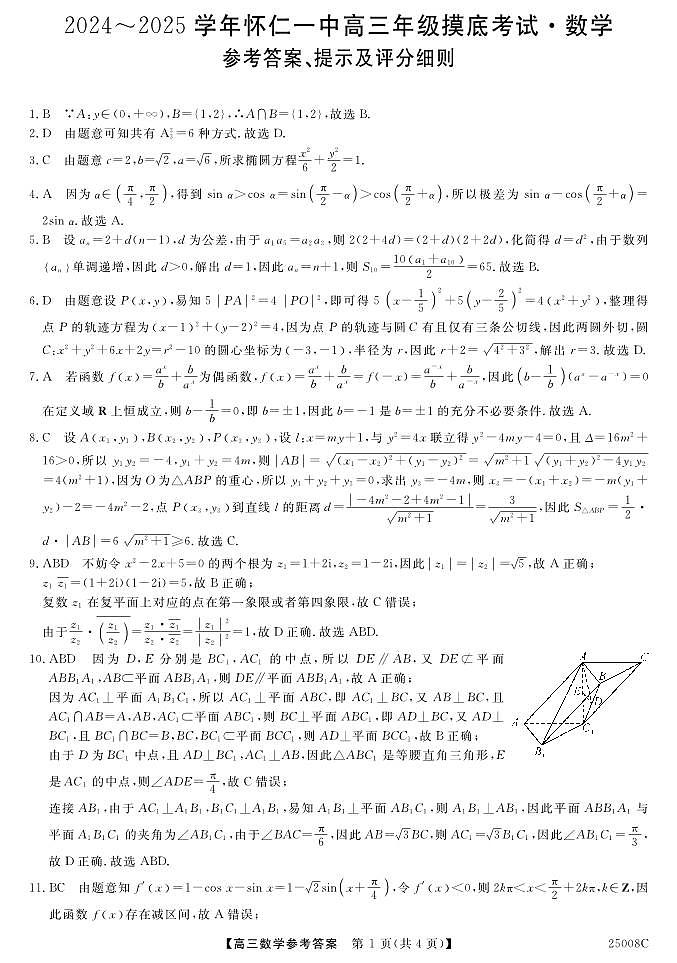 2024～2025 学年怀仁一中高三年级摸底考试·数学
参考答案、提示及评分细则
1. B ∵A:y∈(0,+∞),B={1,2},∴A∩B={1,2},故选 B.
2. D 由题意可知共有 A₃²=6 种方式.故选 D.
3. C 由题意 c=2,b=√2,a=√6,所求椭圆方程x²/6+y²/2=1.
4. A 因为 α∈(π/4,π/2),得到 sin α>cos α=sin(π/2-α)>cos(π/2+α),所以极差为 sin α-cos(π/2+α)=
2sin α.故选 A.
5. B 设 aₙ=2+d(n-1),d 为公差,由于 a₁a₅=a₂a₂,则 2(2+4d)=(2+d)(2+2d),化简得 d=d²,由于数列
{aₙ}单调递增,因此 d>0,解出 d=1,因此 aₙ=n+1,则 S₁₀=10(a₁+a₁₀)/2=65.故选 B.
6. D 由题意设 P(x,y),易知 5|PA|²=4|PO|²,即可得 5(x-1/5)²+5(y-2/5)²=4(x²+y²),整理得
点 P 的轨迹方程为(x-1)²+(y-2)²=4,因为点 P 的轨迹与圆 C 有且仅有三条公切线,因此两圆外切,圆
C:x²+y²+6x+2y=r²-10 的圆心坐标为(-3,-1),半径为 r,因此 r+2=√(4²+3²),解出 r=3.故选 D.
7. A 若函数 f(x)=aˣ/b+b/aˣ为偶函数,f(x)=aˣ/b+b/aˣ=f(-x)=a⁻ˣ/b+b/a⁻ˣ,因此(b-1/b)(aˣ-a⁻ˣ)=0
在定义域 R 上恒成立,则 b-1/b=0,即 b=±1,因此 b=-1 是 b=±1 的充分不必要条件.故选 A.
8. C 设 A(x₁,y₁),B(x₂,y₂),P(x₃,y₃),设 l:x=my+1,与 y²=4x 联立得 y²-4my-4=0,且 Δ=16m²+
16>0,所以 y₁y₂=-4,y₁+y₂=4m,则|AB|=√((x₁-x₂)²+(y₁-y₂)²)=√(m²+1)√((y₁+y₂)²-4y₁y₂)
=4(m²+1),因为 O 为△ABP 的重心,所以 y₁+y₂+y₃=0,求出 y₃=-4m,则 x₃=-(x₁+x₂)=-m(y₁+
y₂)-2=-4m²-2,点 P(x₃,y₃)到直线 l 的距离 d=|-4m²-2+4m²-1|/√(m²+1)=3/√(m²+1),因此 S△ABP=1/2·
d·|AB|=6√(m²+1)≥6.故选 C.
9. ABD 不妨令 x²-2x+5=0 的两个根为 z₁=1+2i,z₂=1-2i,因此|z₁|=|z₂|=√5,故 A 正确;
z₁z̅₁=(1+2i)(1-2i)=5,故 B 正确;
复数 z₁ 在复平面上对应的点在第一象限或者第四象限,故 C 错误;
由于z₁/z₂·(z₁/z₂)̅=z₁·z̅₁/z₂·z̅₂=|z₁|²/|z₂|²=1,故 D 正确.故选 ABD.
10. ABD 因为 D,E 分别是 BC₁,AC₁ 的中点,所以 DE∥AB,又 DE⊄平面
ABB₁A₁,AB⊂平面 ABB₁A₁,则 DE∥平面 ABB₁A₁,故 A 正确;
因为 AC₁⊥平面 A₁B₁C₁,所以 AC₁⊥平面 ABC,即 AC₁⊥BC,又 AB⊥BC,且
AC₁∩AB=A,AB,AC₁⊂平面 ABC₁,则 BC⊥平面 ABC₁,即 AD⊥BC,又 AD⊥
BC₁,且 BC₁∩BC=B,BC,BC₁⊂平面 BCC₁,则 AD⊥平面 BCC₁,故 B 正确;
由于 D 为 BC₁ 中点,且 AD⊥BC₁,AC₁⊥AB,因此△ABC₁ 是等腰直角三角形,E
是 AC₁ 的中点,则∠ADE=π/4,故 C 错误;
连接 AB₁,由于 AC₁⊥A₁B₁,B₁C₁⊥A₁B₁,易知 A₁B₁⊥平面 AB₁C₁,则 A₁B₁⊥AB₁,因此平面 ABB₁A₁ 与
平面 A₁B₁C₁ 的夹角为∠AB₁C₁,由于∠BAC=π/6,因此 AB=√3BC,则 AC₁=√3B₁C₁,因此∠AB₁C₁=π/3,
故 D 正确.故选 ABD.
A
C
B
E
D
A₁
C₁
B₁
11. BC 由题意知 f′(x)=1-cos x-sin x=1-√2sin(x+π/4),令 f′(x)<0,则 2kπ<x<π/2+2kπ,k∈Z,因
此函数 f(x)存在减区间,故 A 错误;
【高三数学参考答案 第 1 页(共 4 页)】
25008C